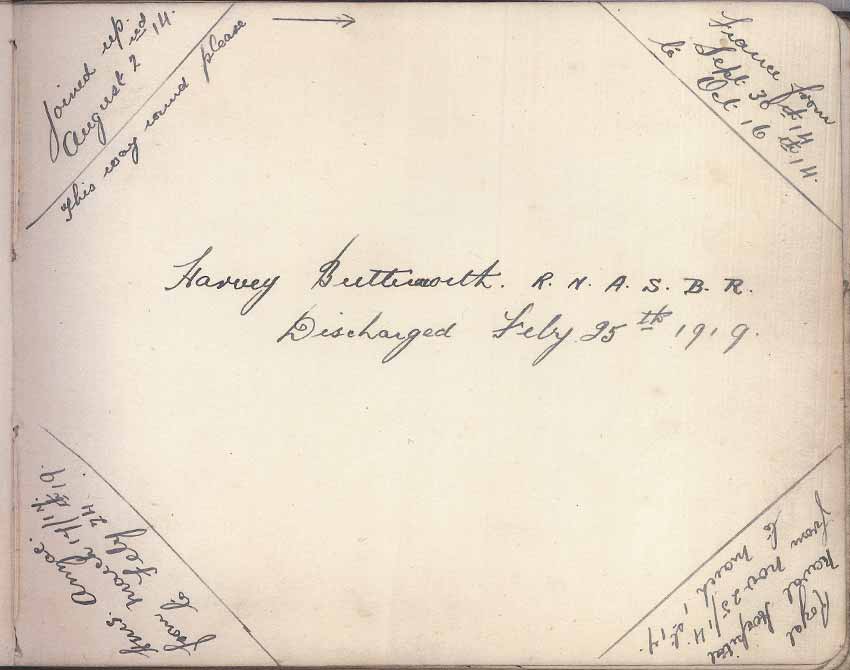 Joined up.
August 2nd 14.
This way round please
France from
Sept 30th 14
to Oct 16th 14.
Harvey Butterworth. R. N. A. S. B. R.
Discharged Feby 25th 1919.
Royal
naval Hospital
from nov 25/14
to march 1st 17.
Hms. Anzac
from march 17/17
to Feby 24th 19.